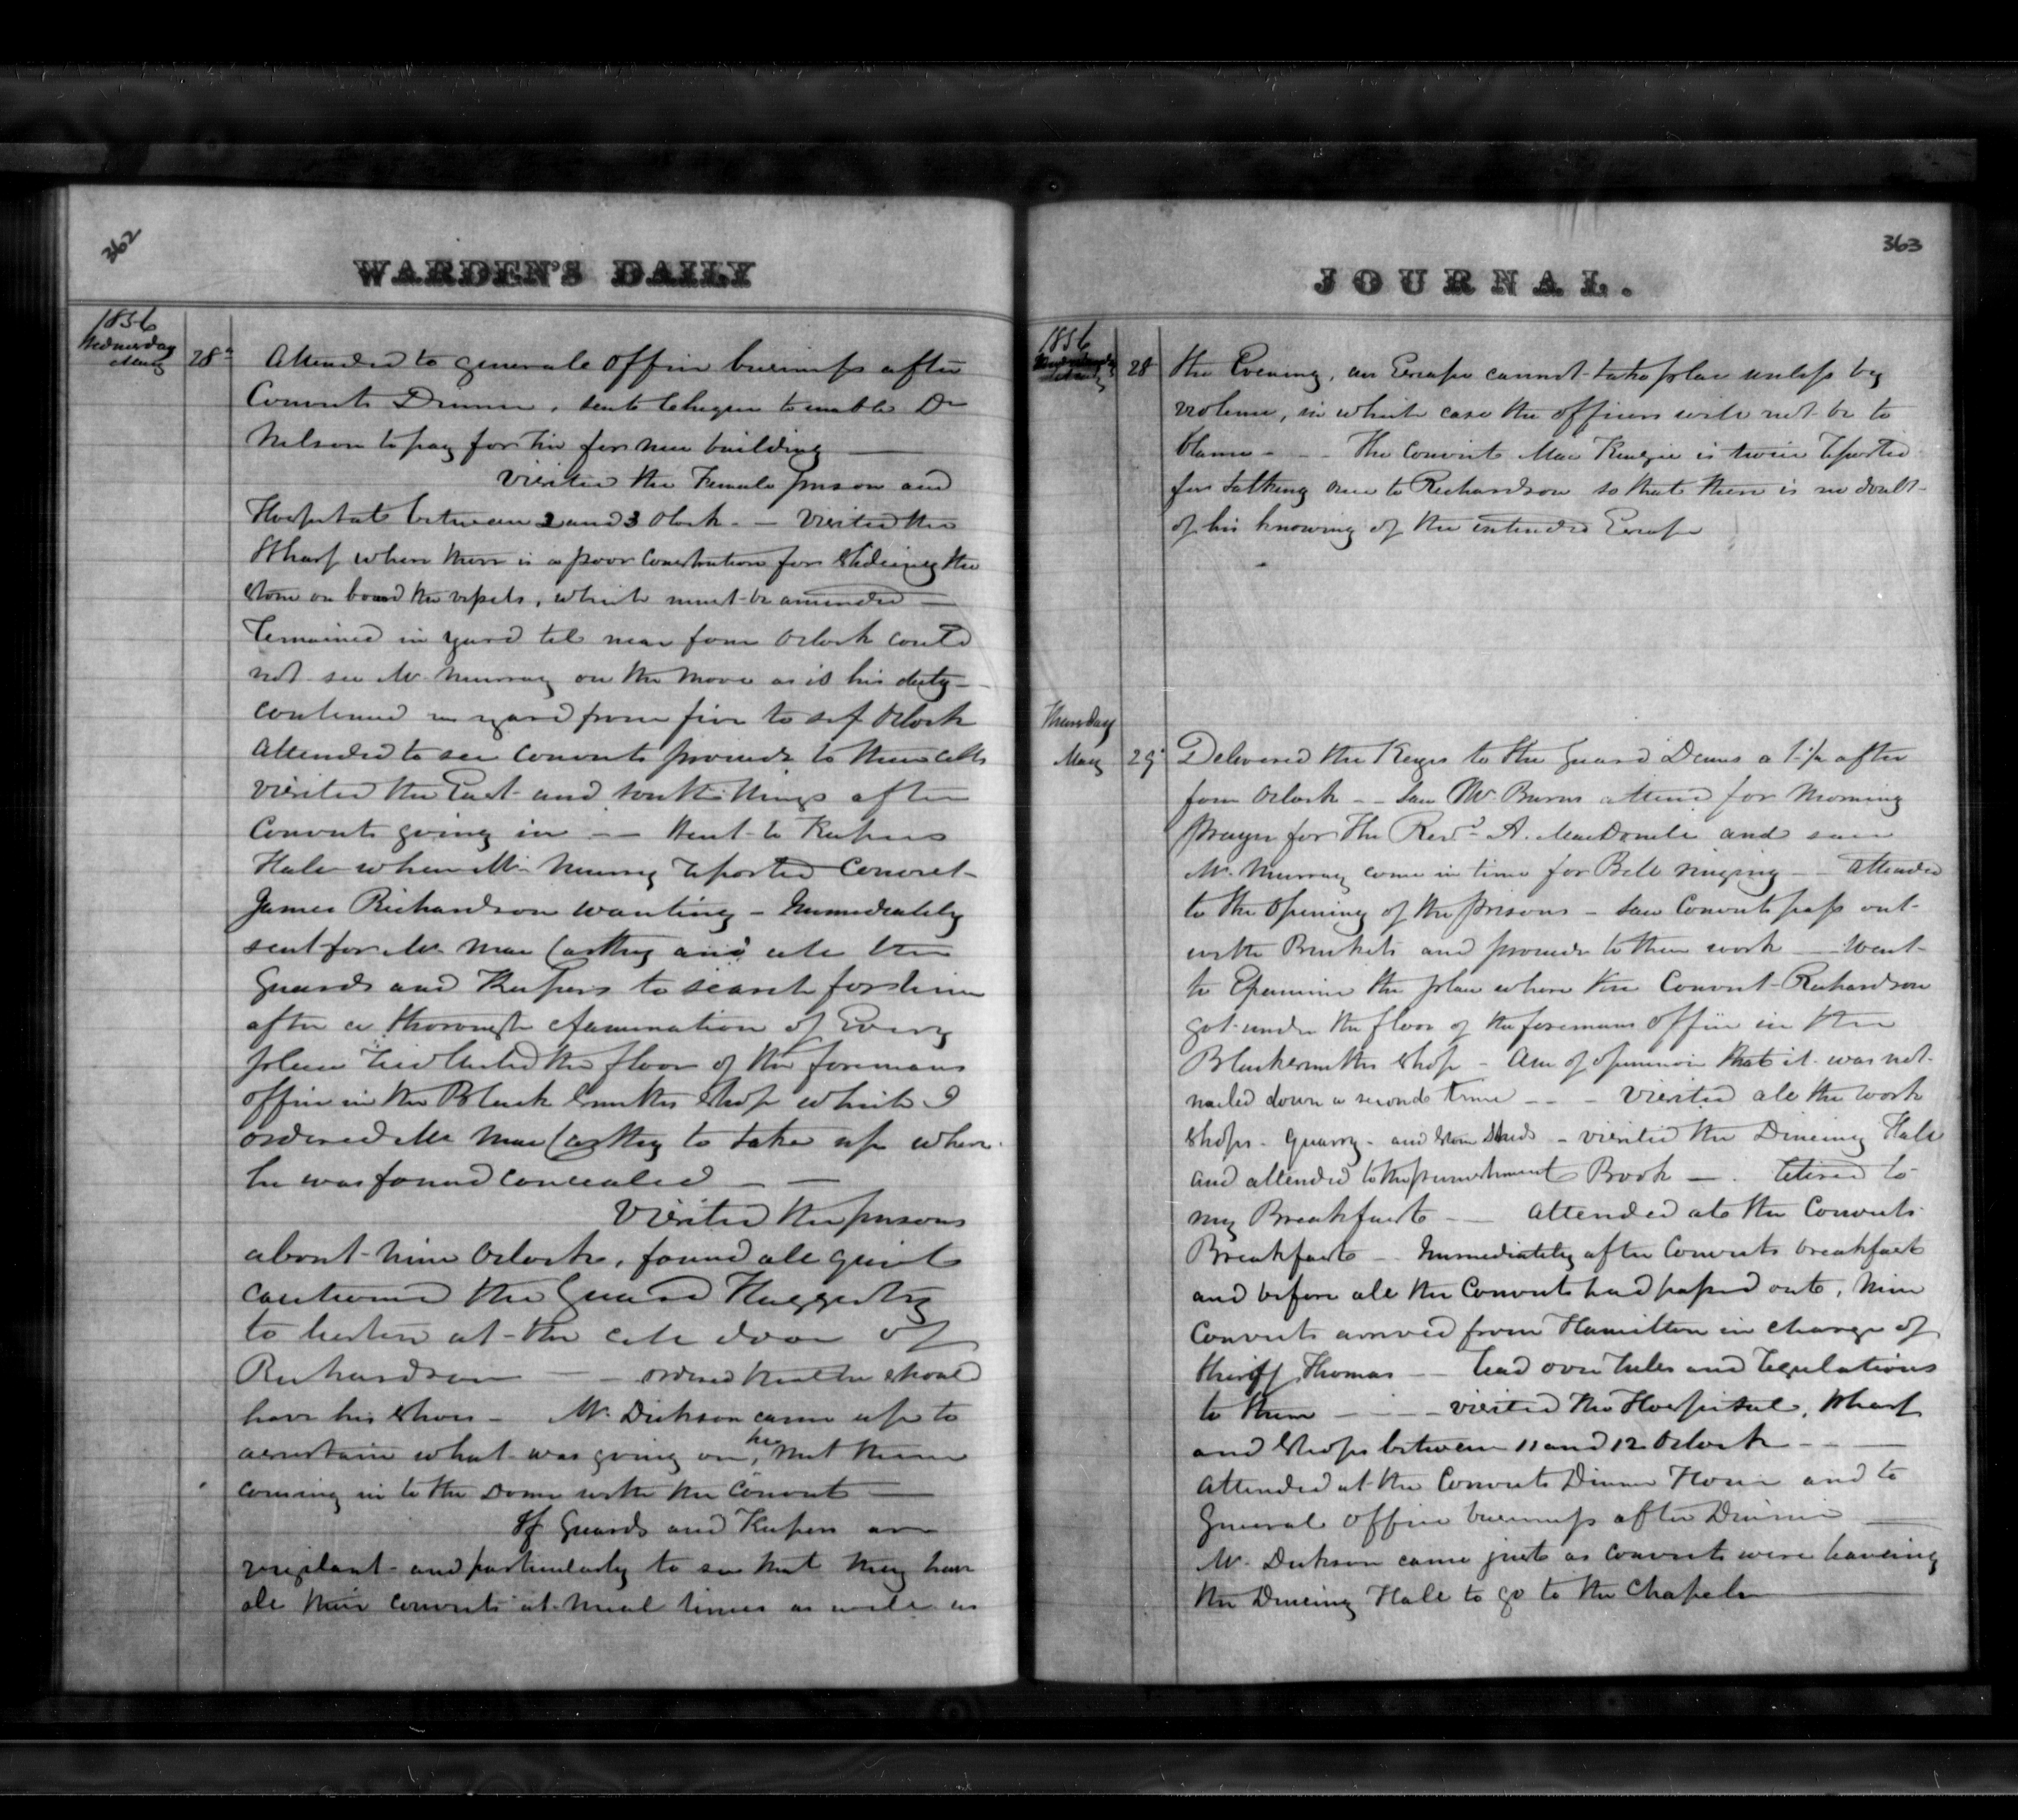 362
WARDEN'S DAILY
1856
Wednesday
May 28th Attended to generale office business after
Convicts Dinner, sent cheque to enable Dr
Nelson to pay for tin for new building —
Visited the Female prison and
Hospital between 2 and 3 Oclock — Visited the
Wharf where there is a poor Construction for Slideing the
stone on board the vessels, which must be amended —
remained in yard til near four Oclock could
not see Mr Murray on the move as is his duty —
continued in yard from five to six Oclock
attended to see convicts proceed to their cells
visited the East and South Wings after
Convicts going in — Went to Keepers
Hall when Mr Murray reported Convict
James Richardson wanting — Immediately
sent for Mr MacCarthy and all the
Guards and Keepers to search for him
after a thorough examination of Every
place the floor of the foremans
office in the Black Smiths Shop which I
ordered Mr MacCarthy to take up where
he was found concealed — —
Visited the prisons
about nine Oclock, found all quiet
cautioned the Guard Haggerty
to listen at the cell door of
Richardson — — ordered that he should
have his shoes — Mr Dickson came up to
ascertain what was going on, he met them
coming in to the Dome with the Convict —
If Guards and Keepers are
vigilant and particularly to see that they have
all their convicts at meal times as well as
JOURNAL.
363
1856
28 the Evening, an Escape cannot take place unless by
violence, in which case the officers will not be to
blame - - The Convict MacKenzie is twice reported
for talking once to Richardson so that there is no doubt
of his knowing of the intended Escape
Thursday
May 29 Delivered the Keys to the Guard Deans a 1/2 after
four Oclock — Saw Mr Burns attend for Morning
prayer for The Revd A. MacDonell and saw
Mr Murray come in time for Bell ringing — Attended
to the Opening of the prisons — Saw Convicts pass out
with Buckets and proceed to their work — Went
to Examine the place where the Convict Richardson
got under the floor of the foremans office in the
Blacksmiths Shop — Am of opinion that it was not
nailed down a second time - - - Visited all the work
Shops - Quarry - and Stone Sheds - visited the Dineing Hall
and attended to the punishment Book — retired to
my Breakfast — Attended at the Convicts
Breakfast — Immediately after Convicts breakfast
and before all the Convicts had passed out, nine
Convicts arrived from Hamilton in charge of
Sheriff Thomas — read over rules and regulations
to them — — visited the Hospital, Wharf
and Shops between 11 and 12 Oclock - -
Attended at the Convicts Dinner Hour and to
General office business after Dinner —
Mr Dickson came just as convicts were leaveing
the Dineing Hall to go to the Chapel —